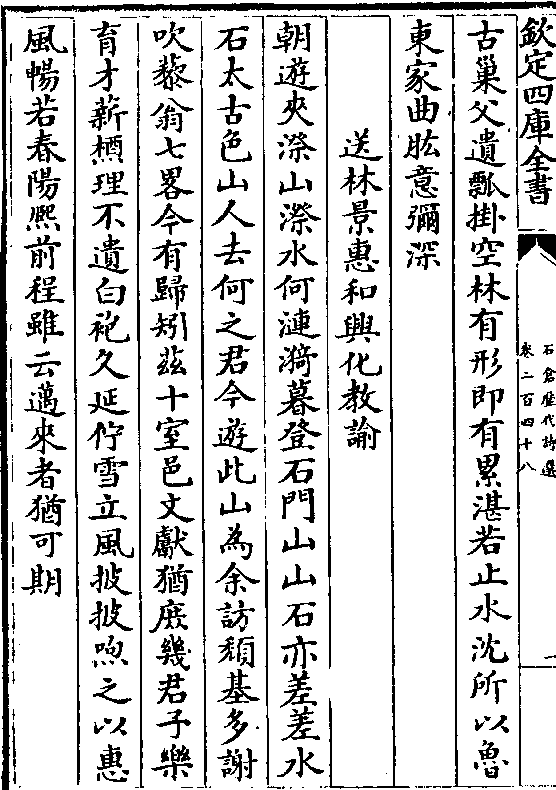 欽定四庫全書
石倉歷代詩選
卷二百四十八
一
古巢父遺瓢掛空林有形即有累湛若止水沈所以魯
東家曲肱意彌深
送林景惠和興化教諭
朝遊夾漈山漈水何漣漪暮登石門山山石亦差差水
石太古色山人去何之君今遊此山為余訪頽基多謝
吹藜翁七畧今有歸矧茲十室邑文獻猶庶幾君子樂
育才薪槱理不遺白袍久延佇雪立風披披喣之以惠
風暢若春陽熈前程雖云邁來者猶可期